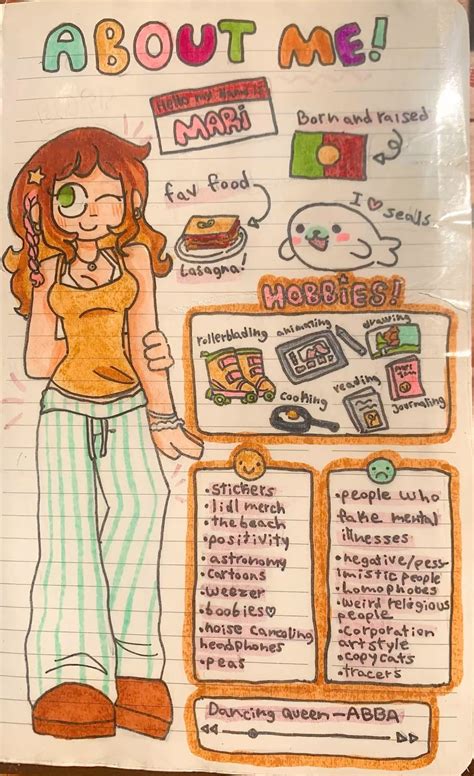 ABOUT ME!
Hello my name is
MARI
Born and raised
fav food
Lasagna!
I ♡ seals
HOBBIES!
rollerblading
animating
drawing
cooking
reading
journaling
•stickers
•lidl merch
•the beach
•positivity
•astronomy
•cartoons
•weezer
•boobies♡
•noise canceling
headphones
•peas
•people who
fake mental
illnesses
•negative/pess-
imistic people
•homophobes
•weird relegious
people
•corporation
artstyle
•copycats
•tracers
Dancing queen—ABBA